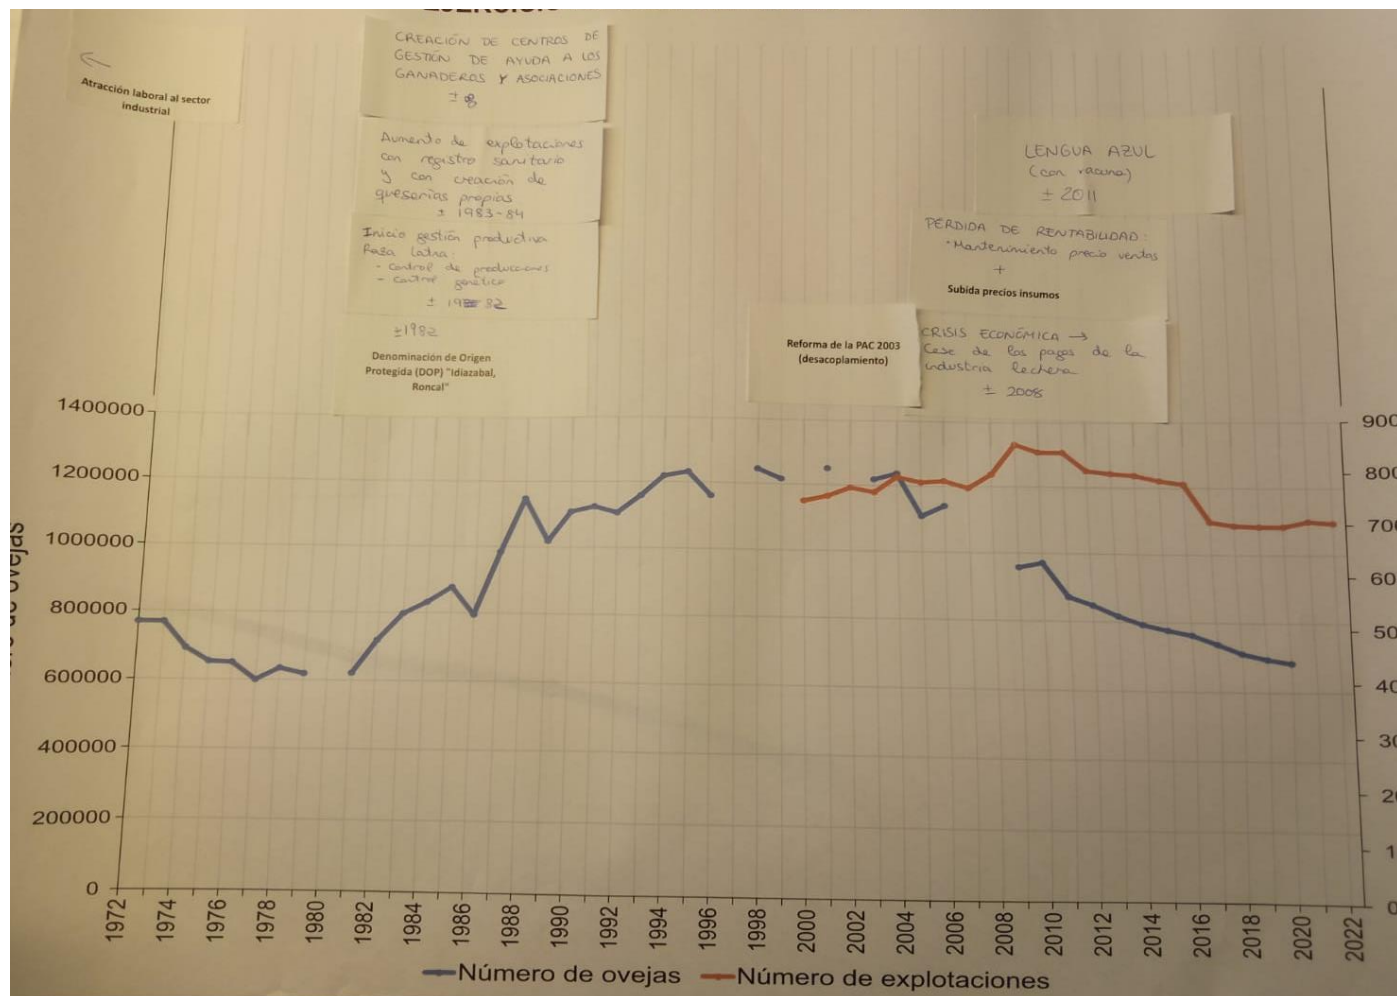 Atracción laboral al sector
industrial
CREACIÓN DE CENTROS DE
GESTIÓN DE AYUDA A LOS
GANADEROS Y ASOCIACIONES
Aumento de explotaciones
con registro sanitario
y con creación de
queserías propias
± 1983-84
Inicio gestión productiva
Raza latxa:
- control de producciones
- control genético
± 1982
±1982
Denominación de Origen
Protegida (DOP) "Idiazabal,
Roncal"
Reforma de la PAC 2003
(desacoplamiento)
LENGUA AZUL
(con vacuna)
± 2011
PÉRDIDA DE RENTABILIDAD:
- Mantenimiento precio ventas
+
Subida precios insumos
CRISIS ECONÓMICA →
Cese de los pagos de la
industria lechera
± 2008
1400000
1200000
1000000
800000
600000
400000
200000
0
de ovejas
900
800
700
60
50
40
30
20
1
0
1972 1974 1976 1978 1980 1982 1984 1986 1988 1990 1992 1994 1996 1998 2000 2002 2004 2006 2008 2010 2012 2014 2016 2018 2020 2022
Número de ovejas Número de explotaciones